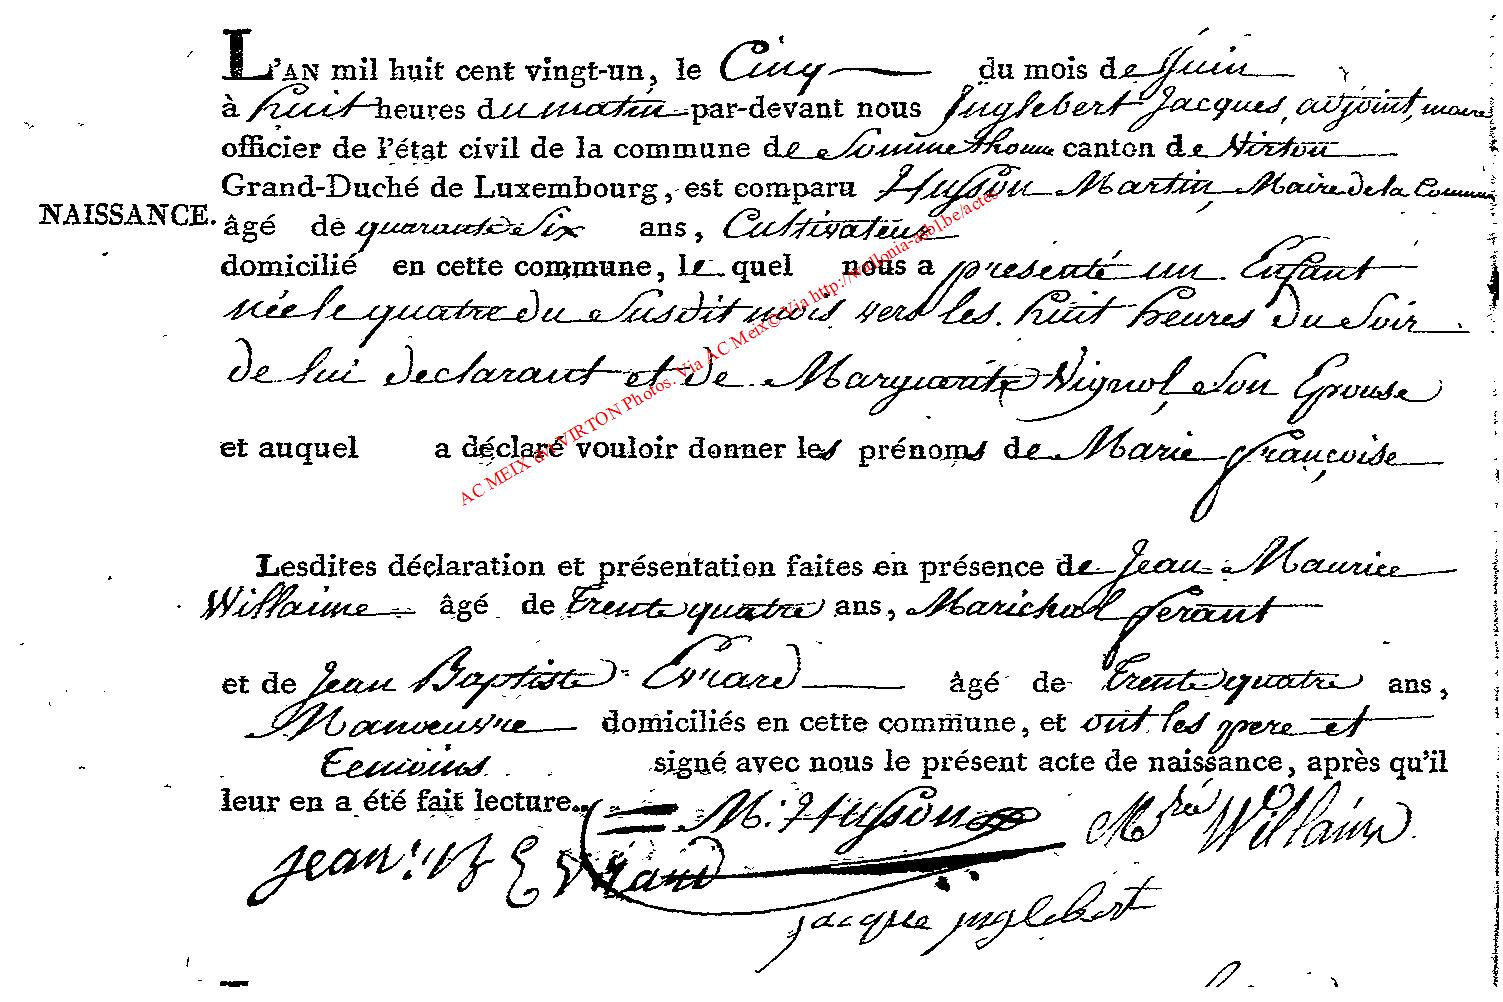 L'AN mil huit cent vingt-un, le Cinq du mois de Juin
à huit heures du matin par-devant nous Inglebert Jacques, adjoint, maire
officier de l'état civil de la commune de Sommethonne canton de Virton
Grand-Duché de Luxembourg, est comparu Husson Martin, Maire de la Commune
NAISSANCE.
âgé de quarante Six ans, Cultivateur
domicilié en cette commune, le quel nous a presenté un Enfant
née le quatre du Susdit mois vers les huit heures du Soir
de lui declarant et de Marguerite Vignol, Son Epouse
et auquel a déclaré vouloir donner les prénoms de Marie françoise
Lesdites déclaration et présentation faites en présence de Jean Maurice
Willaime âgé de trente quatre ans, Marichal ferant
et de Jean Baptiste Evrard âgé de trente quatre ans,
Manoeuvre domiciliés en cette commune, et ont les pere et
temoins signé avec nous le présent acte de naissance, après qu'il
leur en a été fait lecture.
M. Husson
Mrce Willaim
jean B Evrard
jacque jnglebert
AC MEIX dvt VIRTON Photos. Via AC Meix© Via http://wallonia-asbl.be/actes